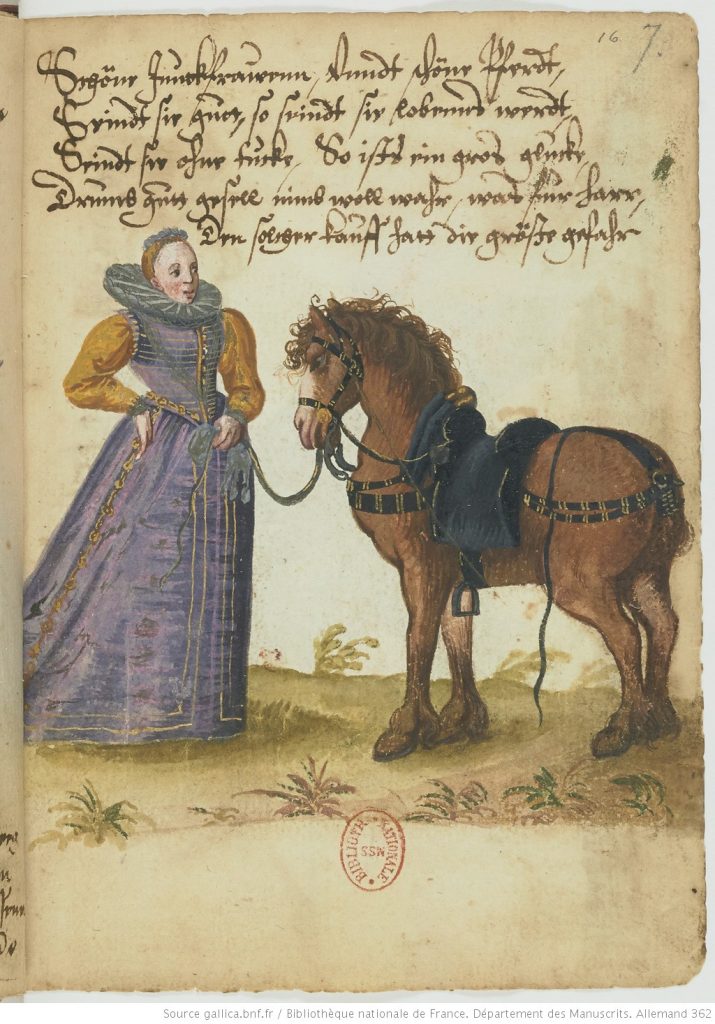 16 7.
Schöne Junckfrawenn, Vnndt schöne Pferdt,
Seindt sie gutt, so seindt sie lobenns werdt,
Seindt sie ohne tücke, So ists ein gros glücke,
Drumb gutt gesell nims woll wahr, was für harr,
Den solcher kauff hatt die gröste gefahr
BIBLIOTH. NATIONALE
SSN
Source gallica.bnf.fr / Bibliothèque nationale de France. Département des Manuscrits. Allemand 362